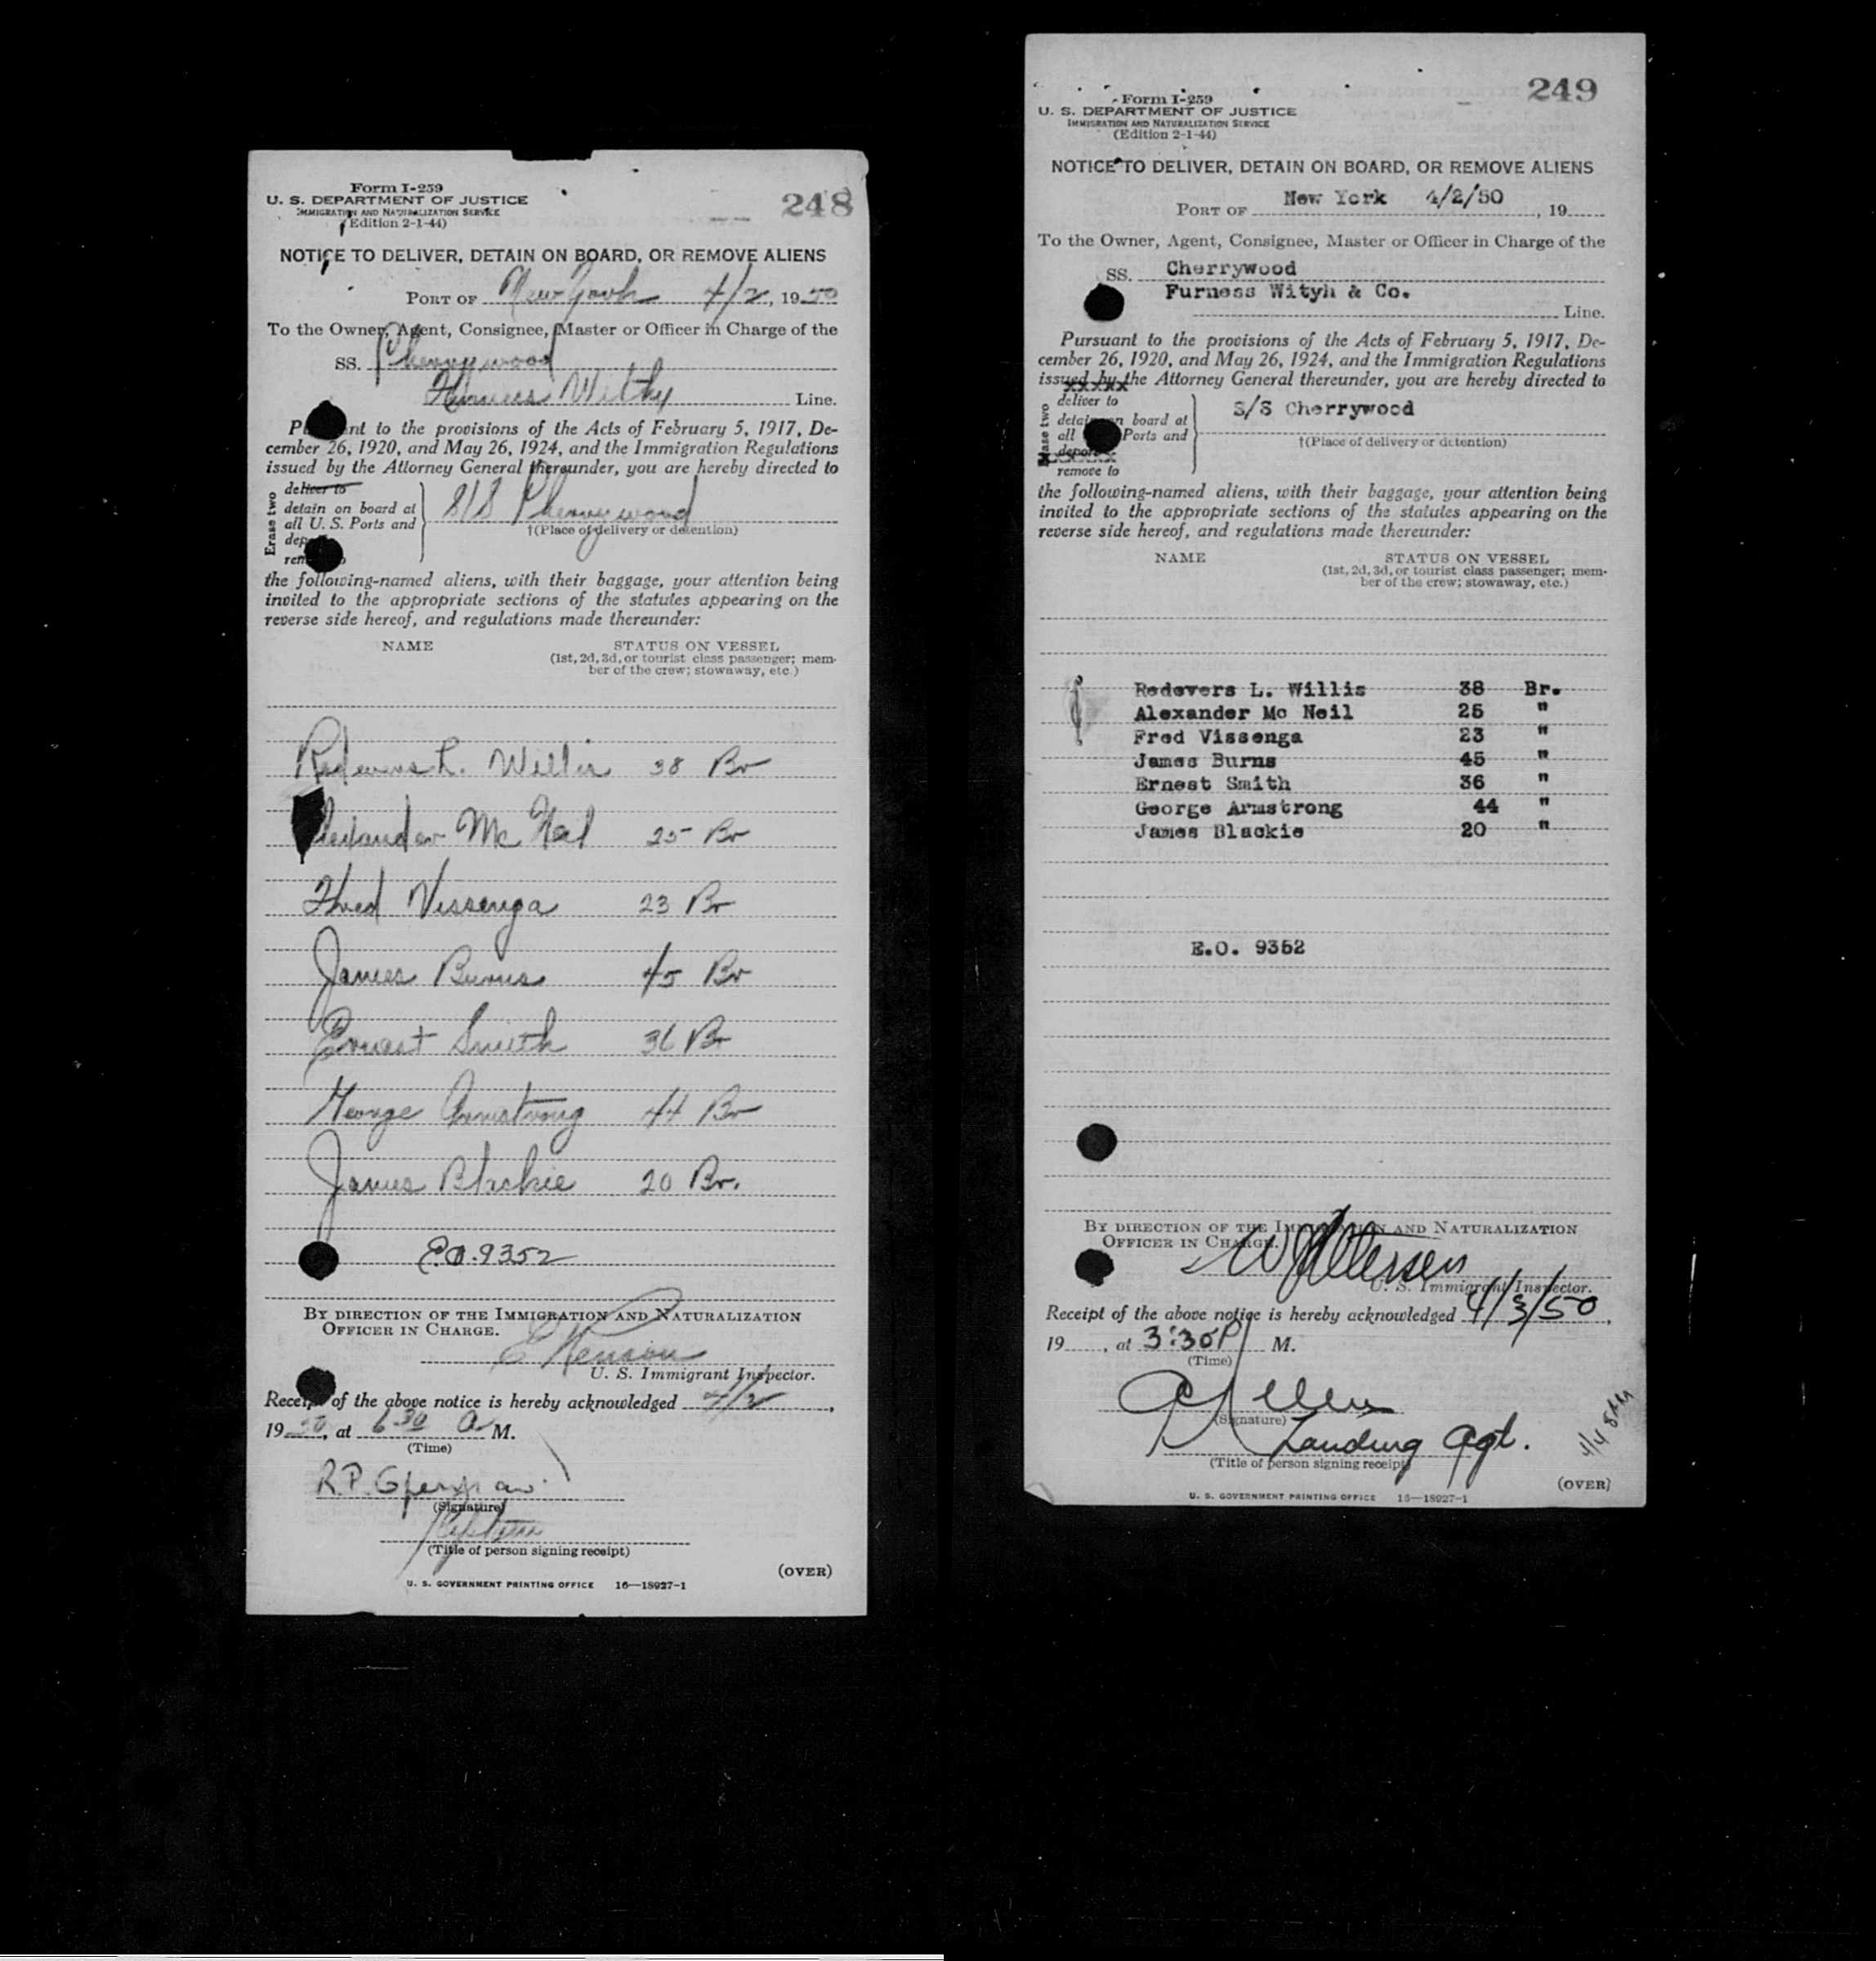 248
Form I-259
U. S. DEPARTMENT OF JUSTICE
IMMIGRATION AND NATURALIZATION SERVICE
(Edition 2-1-44)
NOTICE TO DELIVER, DETAIN ON BOARD, OR REMOVE ALIENS
PORT OF New York 4/2, 1950
To the Owner, Agent, Consignee, Master or Officer in Charge of the
SS. Cherrywood
Furness Withy Line.
nt to the provisions of the Acts of February 5, 1917, De-
cember 26, 1920, and May 26, 1924, and the Immigration Regulations
issued by the Attorney General thereunder, you are hereby directed to
Erase two
deliver to
detain on board at
all U. S. Ports and
S/S Cherrywood
†(Place of delivery or detention)
the following-named aliens, with their baggage, your attention being
invited to the appropriate sections of the statutes appearing on the
reverse side hereof, and regulations made thereunder:
NAME STATUS ON VESSEL
(1st, 2d, 3d, or tourist class passenger; mem-
ber of the crew; stowaway, etc.)
Redevers L. Willis 38 Br
Alexander Mc Neil 25 Br
Fred Vissenga 23 Br
James Burns 45 Br
Ernest Smith 36 Br
George Armstrong 44 Br
James Blackie 20 Br.
E.O. 9352
BY DIRECTION OF THE IMMIGRATION AND NATURALIZATION
OFFICER IN CHARGE.
U. S. Immigrant Inspector.
Receipt of the above notice is hereby acknowledged 4/2,
1950, at 6 30 a M.
(Time)
R.P.
(Signature)
(Title of person signing receipt)
(OVER)
U. S. GOVERNMENT PRINTING OFFICE 16—18927-1
249
Form I-259
U. S. DEPARTMENT OF JUSTICE
IMMIGRATION AND NATURALIZATION SERVICE
(Edition 2-1-44)
NOTICE TO DELIVER, DETAIN ON BOARD, OR REMOVE ALIENS
PORT OF New York 4/2/50, 19
To the Owner, Agent, Consignee, Master or Officer in Charge of the
SS. Cherrywood
Furness Wityh & Co.
Line.
Pursuant to the provisions of the Acts of February 5, 1917, De-
cember 26, 1920, and May 26, 1924, and the Immigration Regulations
issued by the Attorney General thereunder, you are hereby directed to
deliver to
detain on board at
all Ports and
remove to
S/S Cherrywood
†(Place of delivery or detention)
the following-named aliens, with their baggage, your attention being
invited to the appropriate sections of the statutes appearing on the
reverse side hereof, and regulations made thereunder:
NAME STATUS ON VESSEL
(1st, 2d, 3d, or tourist class passenger; mem-
ber of the crew; stowaway, etc.)
Redevers L. Willis 38 Br.
Alexander Mc Neil 25 "
Fred Vissenga 23 "
James Burns 45 "
Ernest Smith 36 "
George Armstrong 44 "
James Blackie 20 "
E.O. 9352
BY DIRECTION OF THE IMMIGRATION AND NATURALIZATION
OFFICER IN CHARGE.
U. S. Immigrant Inspector.
Receipt of the above notice is hereby acknowledged 4/3/50,
19, at 3:30 P M.
(Time)
(Signature)
Landing Agt.
(Title of person signing receipt)
(OVER)
U. S. GOVERNMENT PRINTING OFFICE 16—18927-1